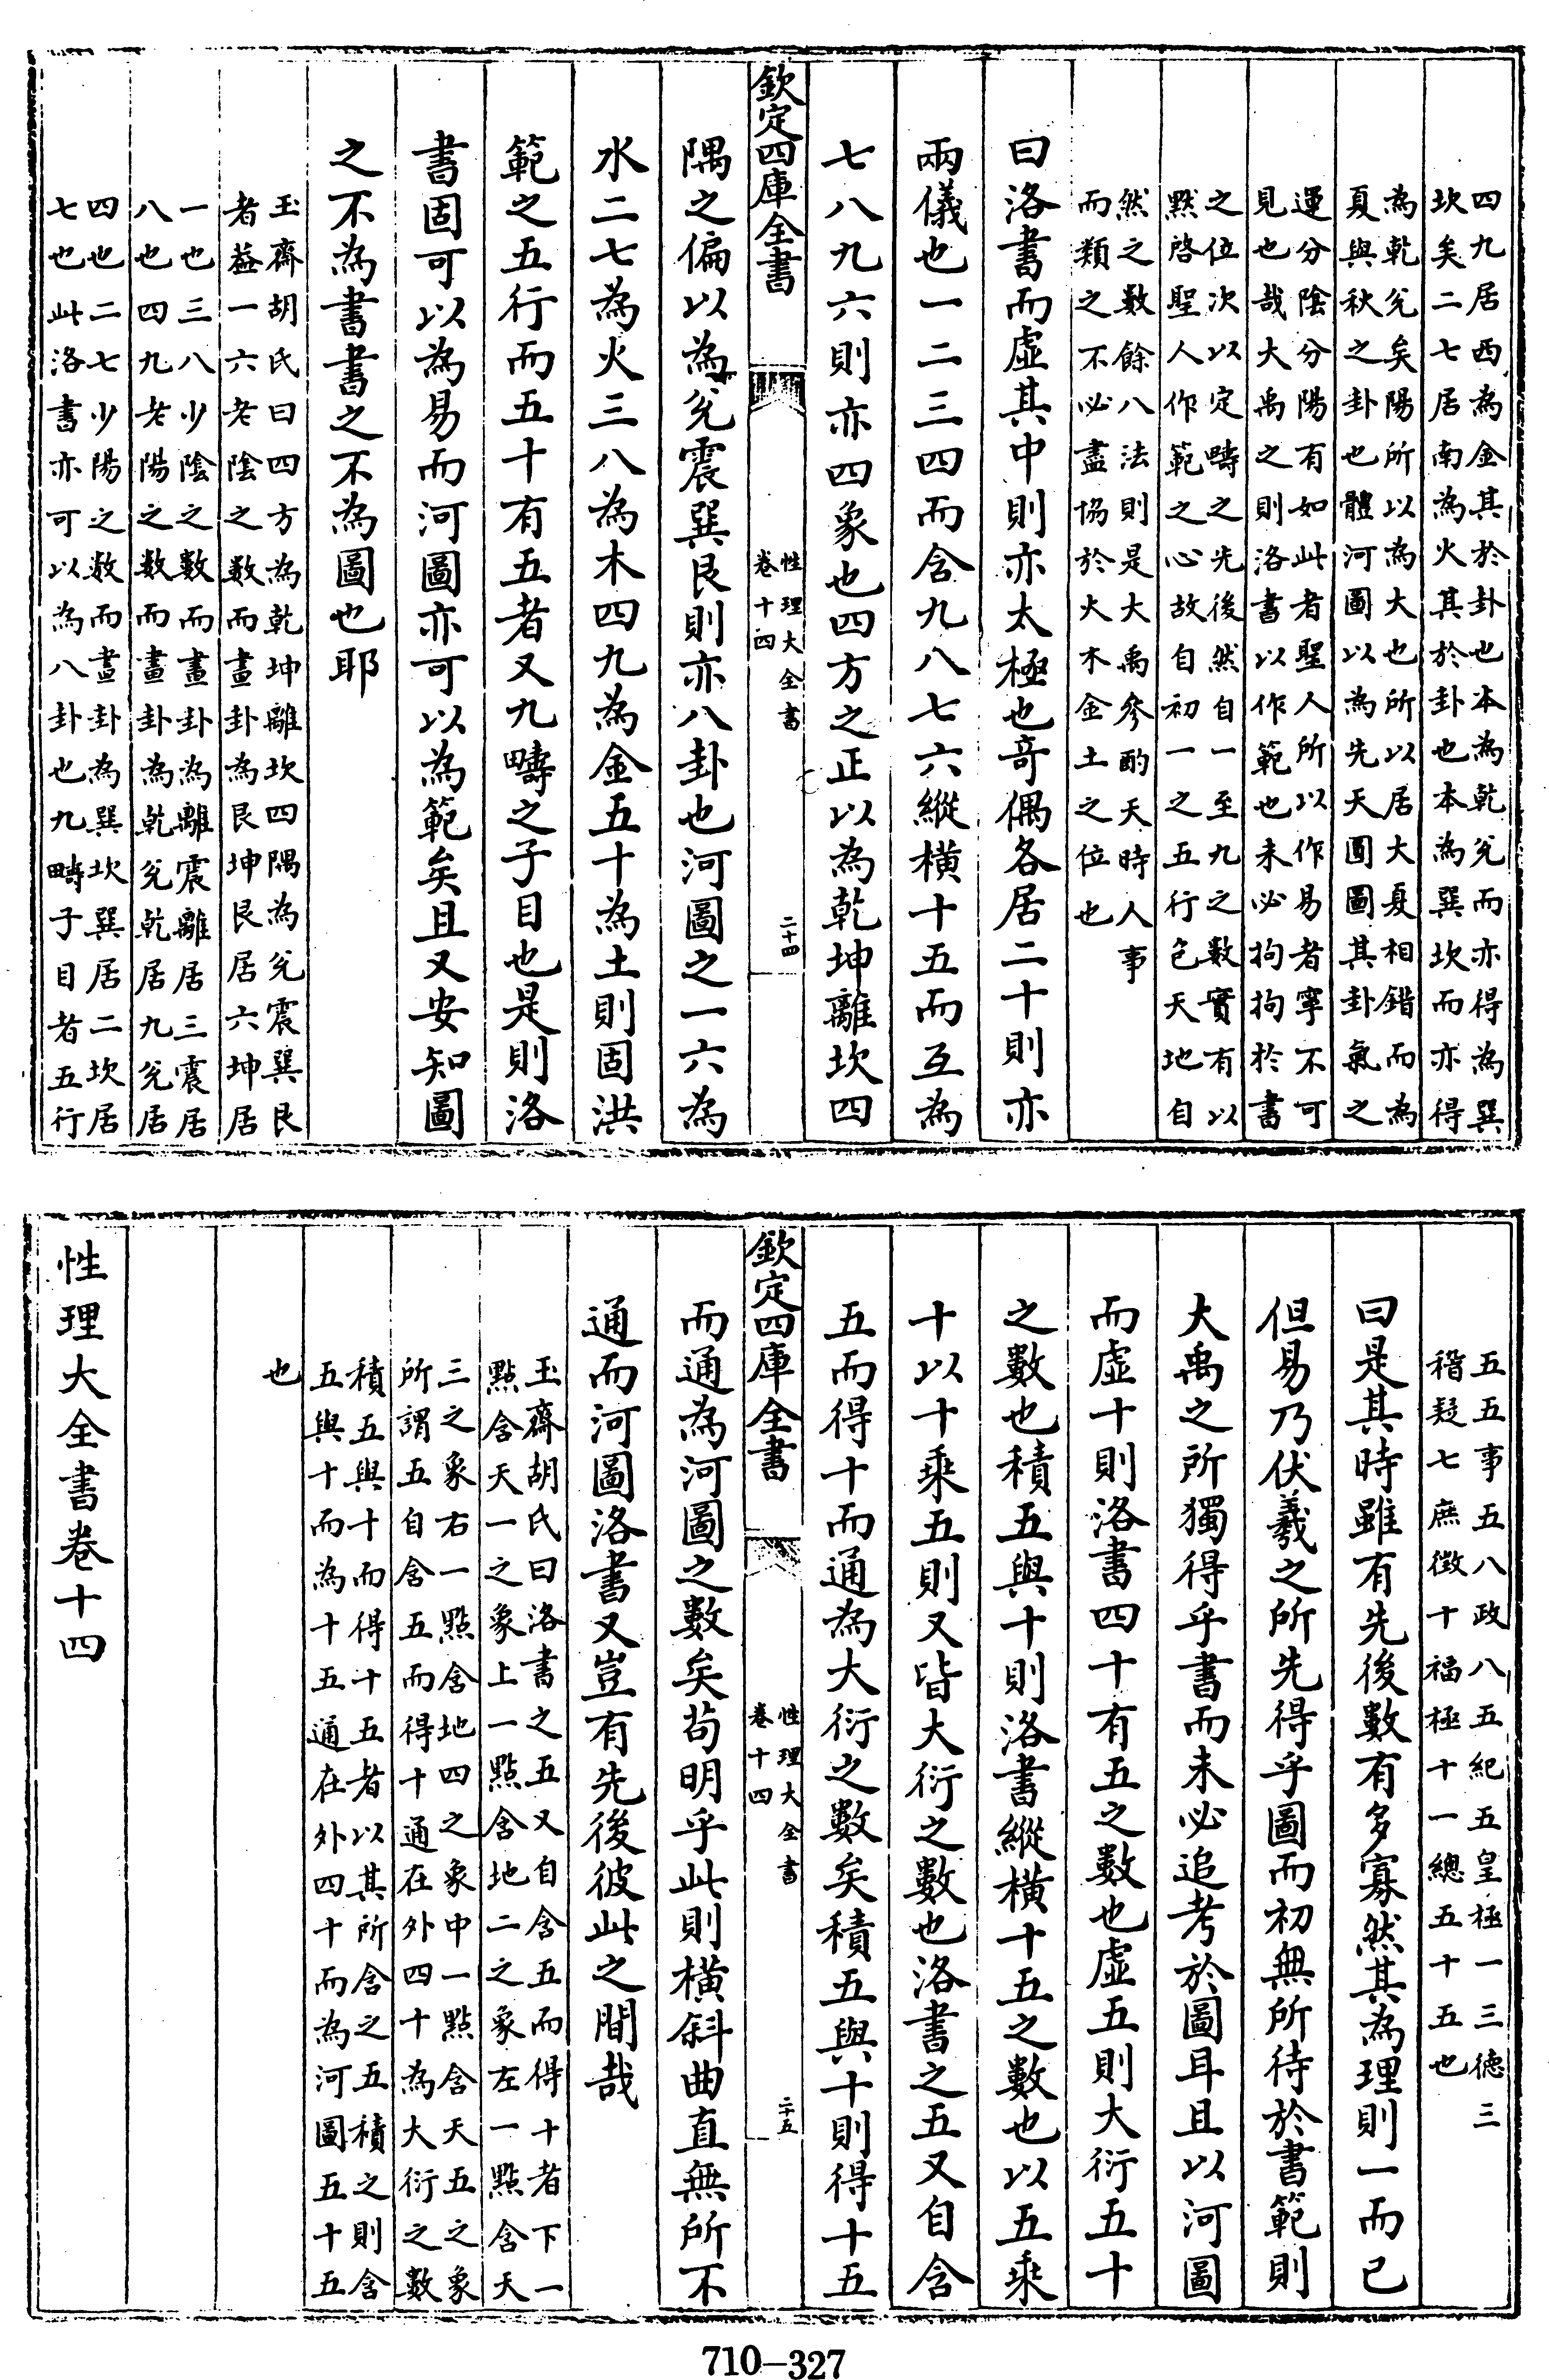 四九居西為金其於卦也本為乾兊而亦得為巽
坎矣二七居南為火其於卦也本為巽坎而亦得
為乾兊矣陽所以為大也所以居大夏相錯而為
夏與秋之卦也體河圖以為先天圓圖其卦氣之
運分陰分陽有如此者聖人所以作易者寧不可
見也哉大禹之則洛書以作範也未必拘拘於書
之位次以定疇之先後然自一至九之數實有以
黙啓聖人作範之心故自初一之五行包天地自
然之數餘八法則是大禹參酌天時人事
而類之不必盡協於火木金土之位也
曰洛書而虚其中則亦太極也竒偶各居二十則亦
兩儀也一二三四而含九八七六縱橫十五而互為
七八九六則亦四象也四方之正以為乾坤離坎四
欽定四庫全書
性理大全書
卷十四
二十四
隅之偏以為兊震巽艮則亦八卦也河圖之一六為
水二七為火三八為木四九為金五十為土則固洪
範之五行而五十有五者又九疇之子目也是則洛
書固可以為易而河圖亦可以為範矣且又安知圖
之不為書書之不為圖也耶
玉齋胡氏曰四方為乾坤離坎四隅為兊震巽艮
者葢一六老陰之數而畫卦為艮坤艮居六坤居
一也三八少陰之數而畫卦為離震離居三震居
八也四九老陽之數而畫卦為乾兊乾居九兊居
四也二七少陽之數而畫卦為巽坎巽居二坎居
七也此洛書亦可以為八卦也九疇子目者五行
五五事五八政八五紀五皇極一三徳三
稽疑七庶徴十福極十一總五十五也
曰是其時雖有先後數有多寡然其為理則一而已
但易乃伏羲之所先得乎圖而初無所待於書範則
大禹之所獨得乎書而未必追考於圖耳且以河圖
而虚十則洛書四十有五之數也虚五則大衍五十
之數也積五與十則洛書縱橫十五之數也以五乘
十以十乘五則又皆大衍之數也洛書之五又自含
五而得十而通為大衍之數矣積五與十則得十五
欽定四庫全書
性理大全書
卷十四
二十五
而通為河圖之數矣苟明乎此則橫斜曲直無所不
通而河圖洛書又豈有先後彼此之間哉
玉齋胡氏曰洛書之五又自含五而得十者下一
點含天一之象上一點含地二之象左一點含天
三之象右一點含地四之象中一點含天五之象
所謂五自含五而得十通在外四十為大衍之數
積五與十而得十五者以其所含之五積之則含
五與十而為十五通在外四十而為河圖五十五
也
性理大全書卷十四
710-327